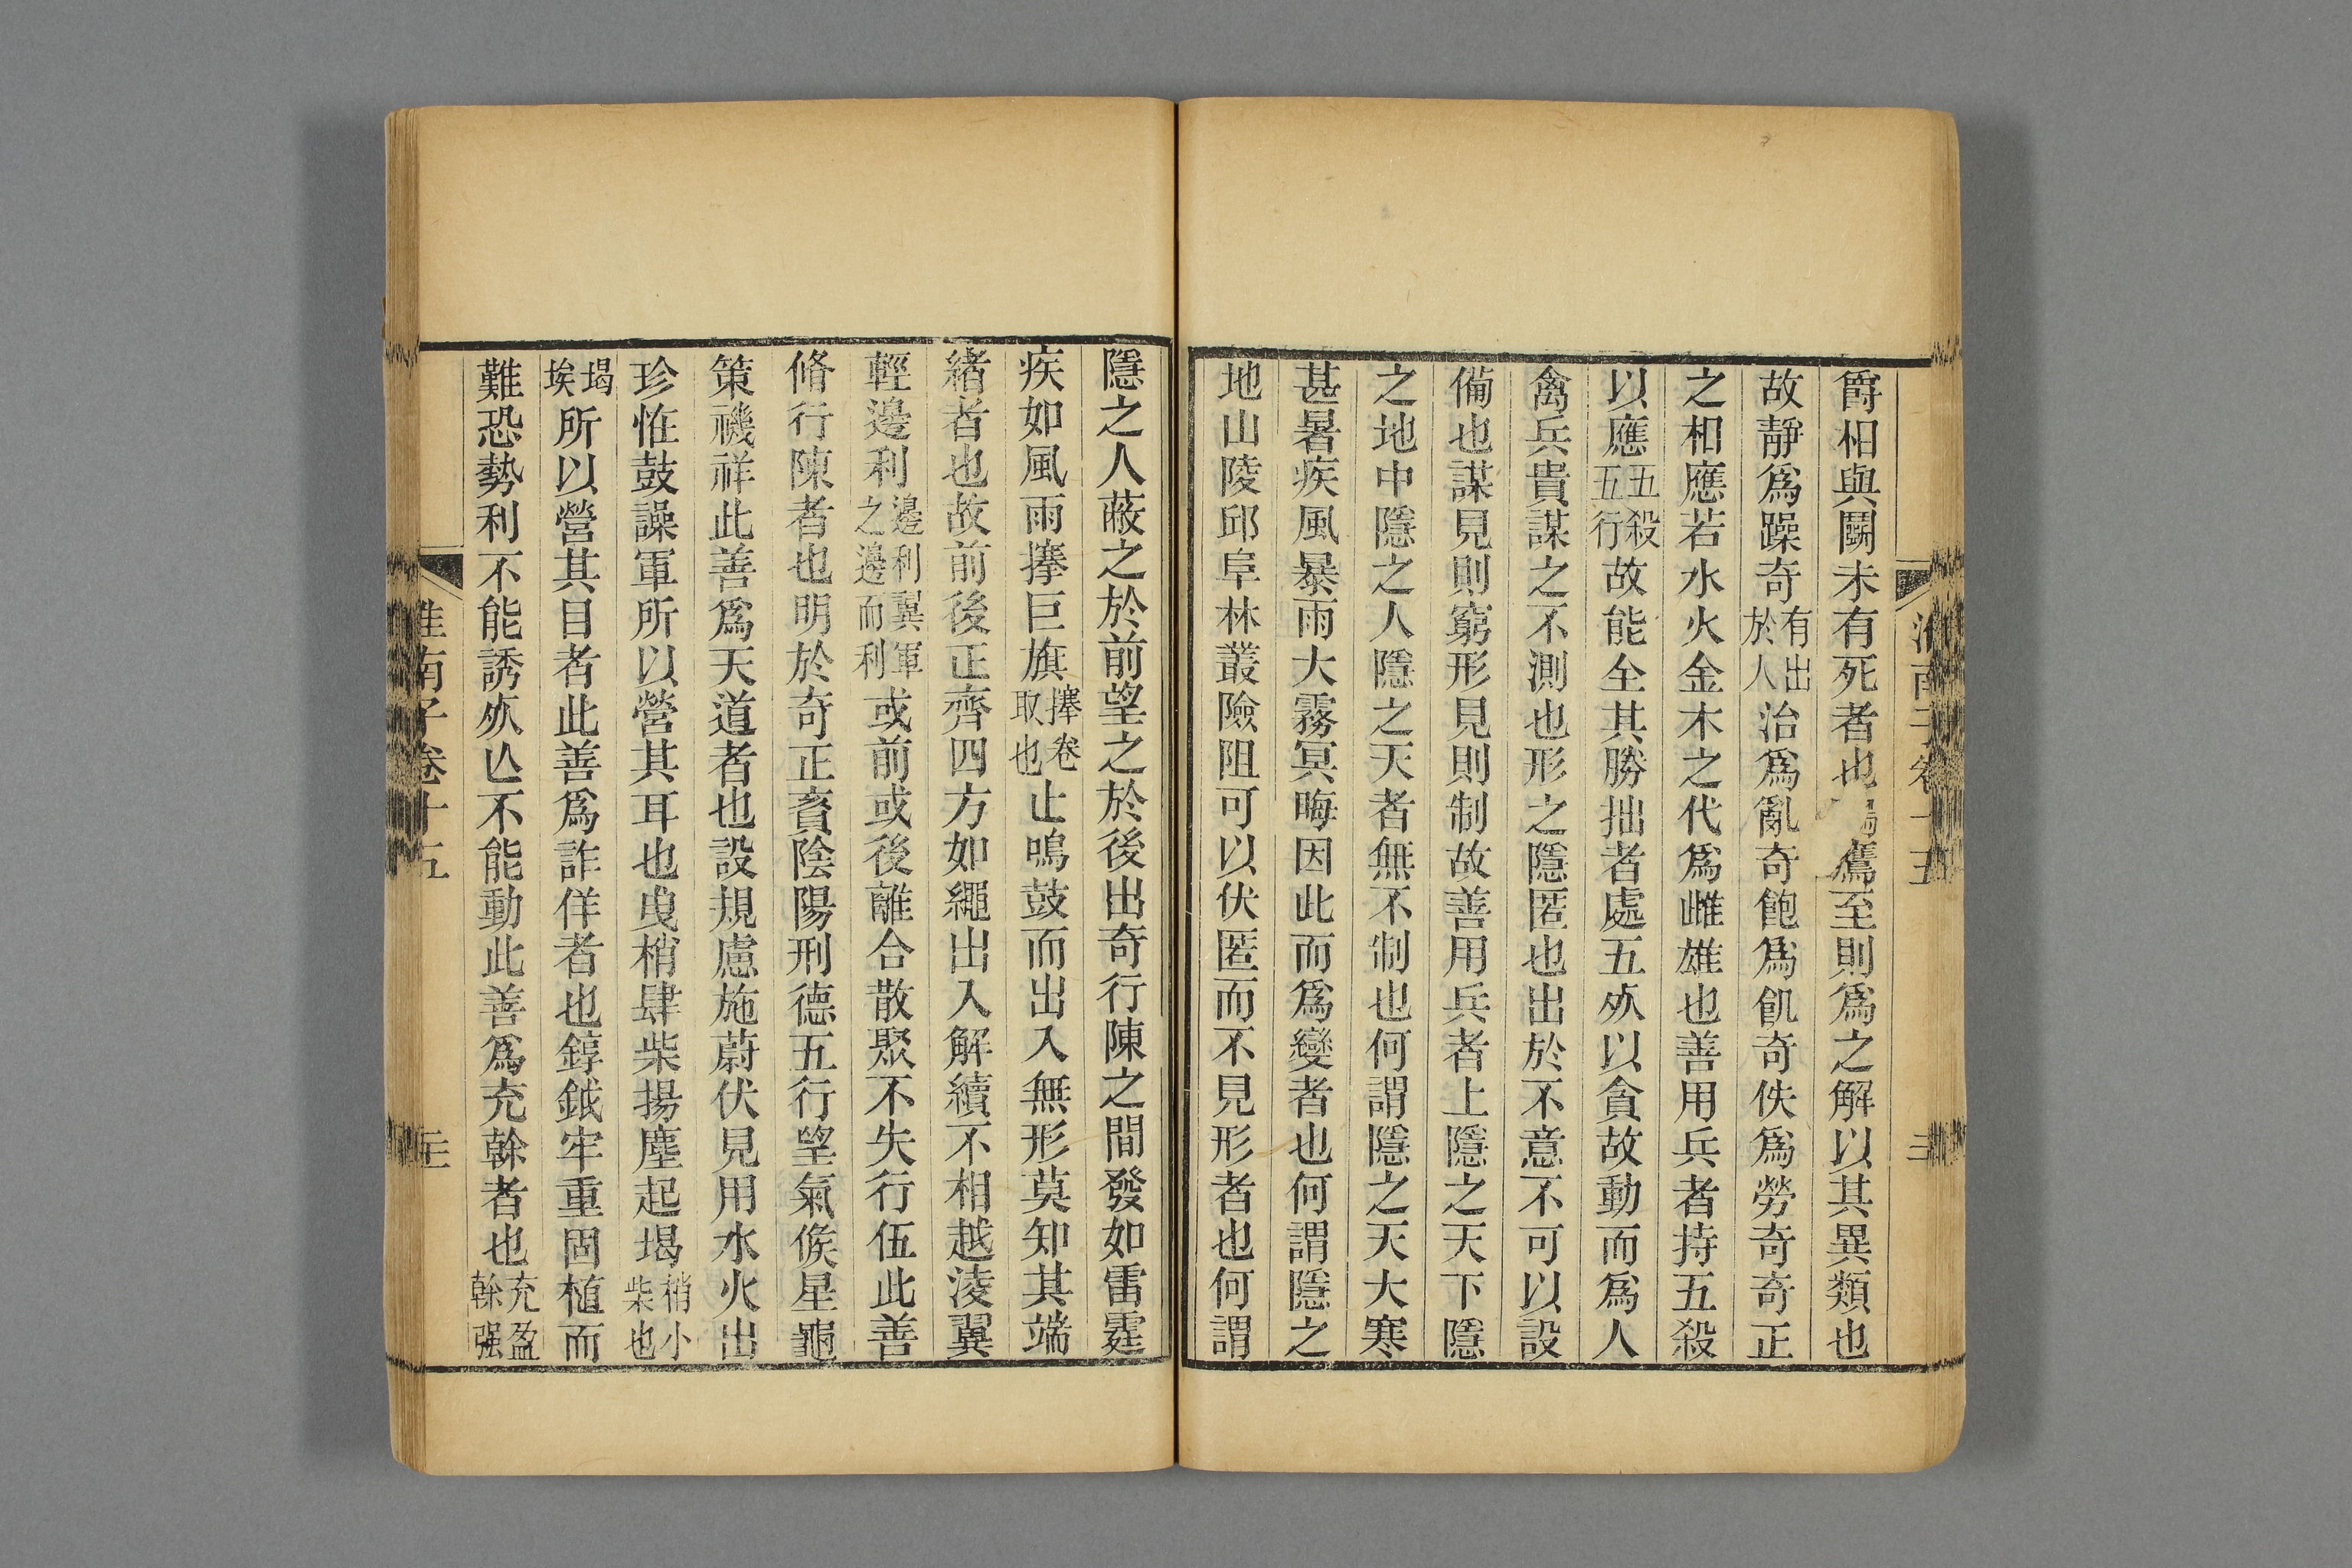 爵相與鬬未有死者也鷹至則爲之解以其異類也
故靜爲躁奇有出於人治爲亂奇飽爲飢奇佚爲勞奇奇正
之相應若水火金木之代爲雌雄也善用兵者持五殺
以應五殺五行故能全其勝拙者處五死以貪故動而爲人
禽兵貴謀之不測也形之隱匿也出於不意不可以設
備也謀見則窮形見則制故善用兵者上隱之天下隱
之地中隱之人隱之天者無不制也何謂隱之天大寒
甚暑疾風暴雨大霧冥晦因此而爲變者也何謂隱之
地山陵邱阜林叢險阻可以伏匿而不見形者也何謂
隱之人蔽之於前望之於後出奇行陳之間發如雷霆
疾如風雨搴巨旗搴卷取也止鳴鼓而出入無形莫知其端
緒者也故前後正齊四方如繩出入解續不相越淩翼
輕邊利邊利翼軍之邊而利或前或後離合散聚不失行伍此善
脩行陳者也明於奇正賌陰陽刑德五行望氣候星龜
策禨祥此善爲天道者也設規慮施蔚伏見用水火出
珍怪鼓譟軍所以營其耳也曳梢肆柴揚塵起堨梢小柴也
堨埃所以營其目者此善爲詐佯者也錞鉞牢重固植而
難恐勢利不能誘死亾不能動此善爲充榦者也充盈榦强
淮南子卷十五